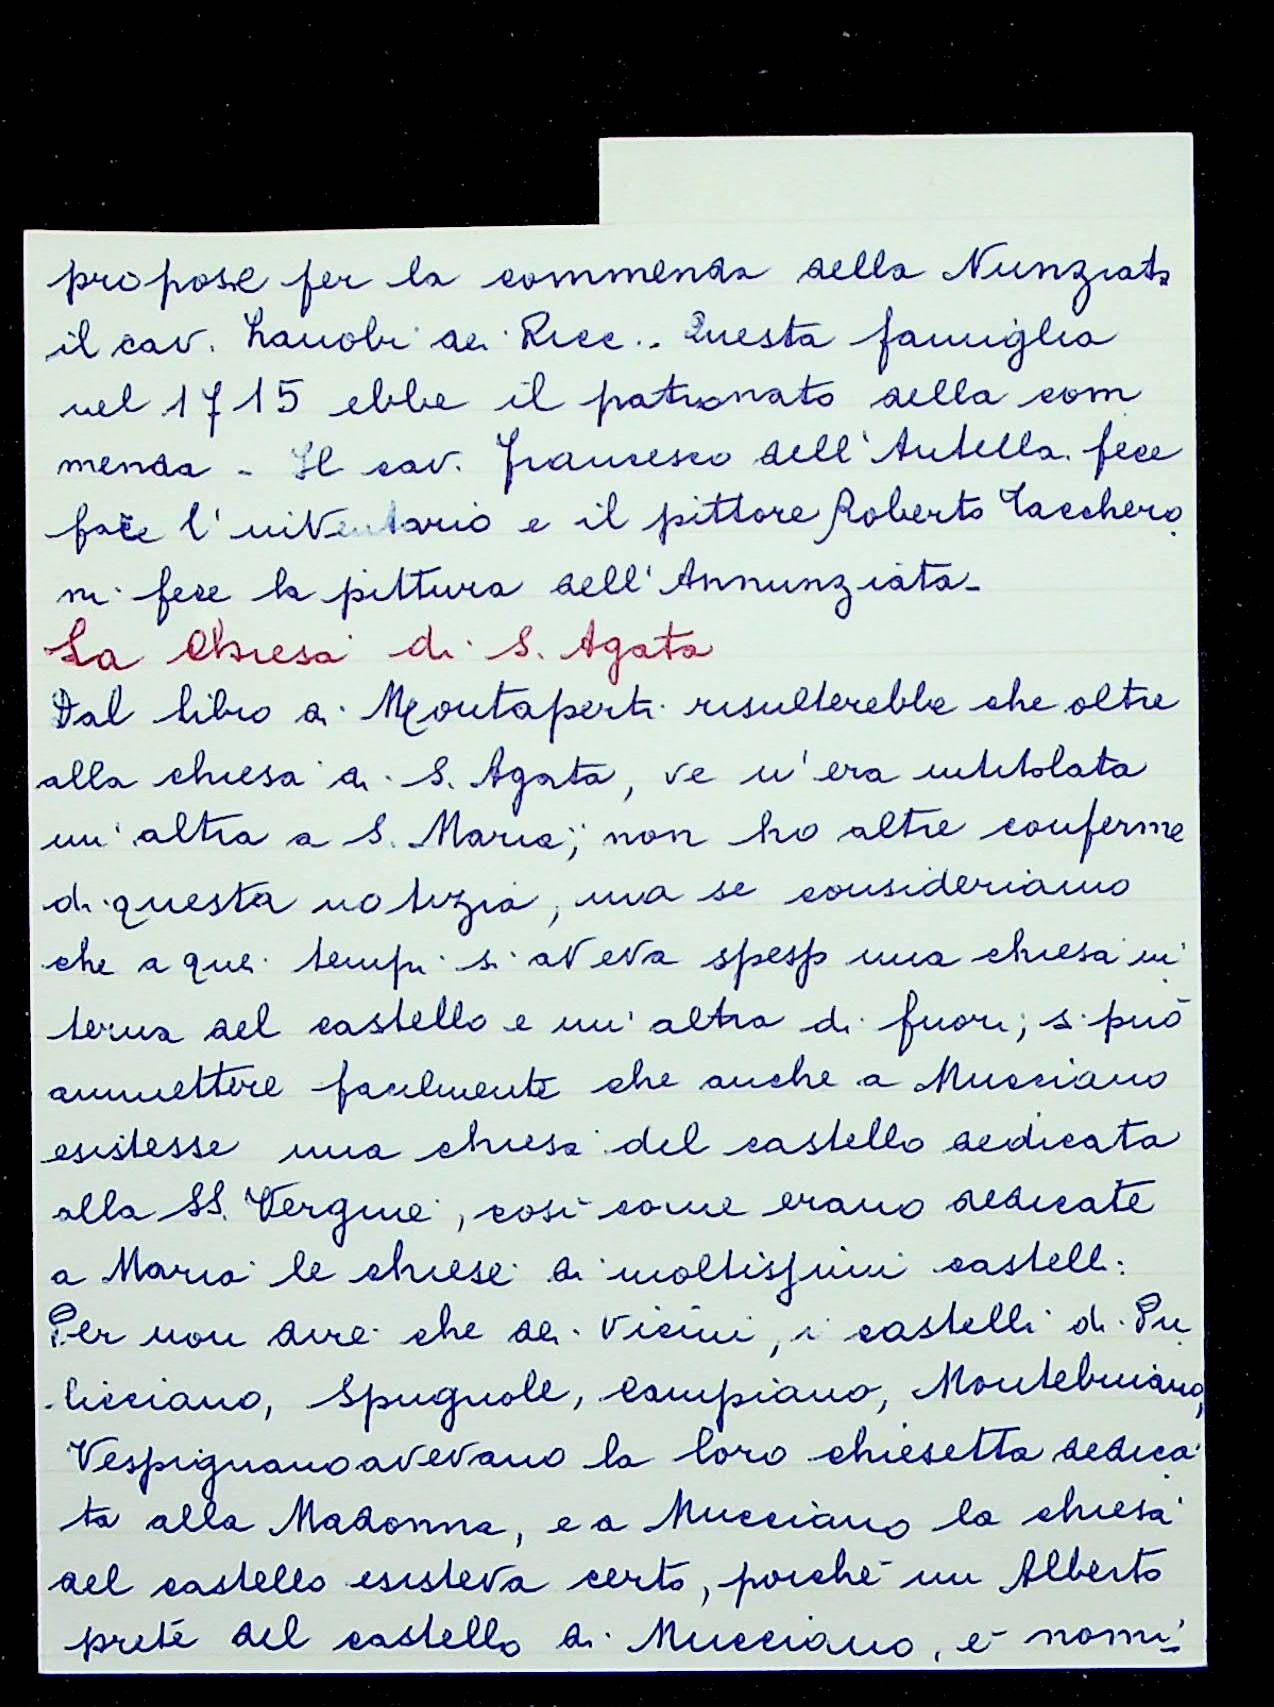 propose per la commenda della Nunziata
il cav. Zanobi dei Ricc.. Questa famiglia
nel 1715 ebbe il patronato della com
menda - Il cav. Francesco dell'Antella fece
fare l'inventario e il pittore Roberto Zacchero
ni fece la pittura dell'Annunziata-
La Chiesa di S. Agata
Dal libro di Montaperti risulterebbe che oltre
alla chiesa di S. Agata, ve n'era intitolata
un'altra a S. Maria; non ho altre conferme
di questa notizia, ma se consideriamo
che a quei tempi si aveva spesso una chiesa in
terna del castello e un'altra di fuori; si può
ammettere facilmente che anche a Mucciano
esistesse una chiesa del castello dedicata
alla SS. Vergine, così come erano dedicate
a Maria le chiese di moltissimi castelli:
Per non dire che dei vicini, i castelli di Pu
licciano, Spugnole, Campiano, Montebuiano,
Vespignano avevano la loro chiesetta dedica
ta alla Madonna, e a Mucciano la chiesa
del castello esisteva certo, poiché un Alberto
prete del castello di Mucciano, è nomi-